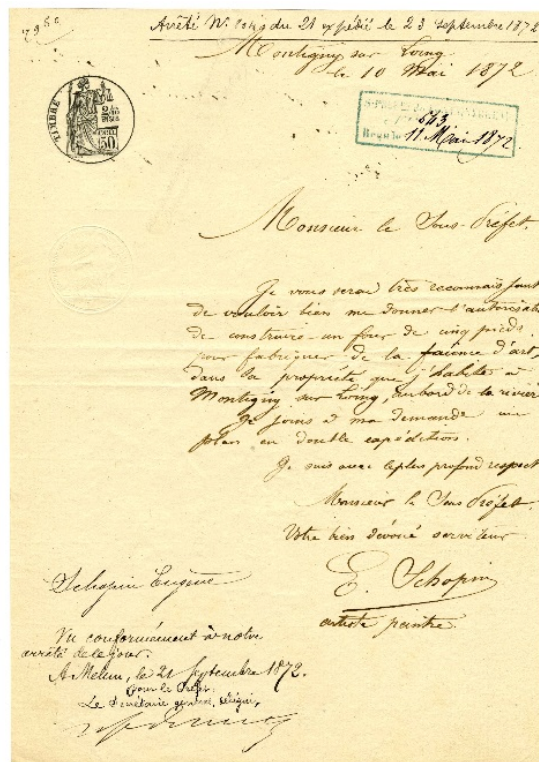 Arrêté N. du 21 expédié le 23 septembre 1872
Montigny sur Loing
le 10 Mai 1872
TIMBRE
543
Reçu le 11 Mai 1872
Monsieur le Sous-Préfet,
Je vous serai très reconnaissant
de vouloir bien me donner l'autorisat
de construire un four de cinq pieds
pour fabriquer de la faience d'art,
dans la propriété que j'habite à
Montigny sur Loing, au bord de la rivièr
Je joins à ma demande un
plan en double expédition.
Je suis avec le plus profond respect
Monsieur le Sous Préfet
Votre bien dévoué serviteur
E. Schopin
artiste peintre
Schopin Eugène
Vu conformément à notre
arrêté de ce jour.
A Melun, le 21 Septembre 1872.
Pour le Préfet:
Le Secrétaire général,